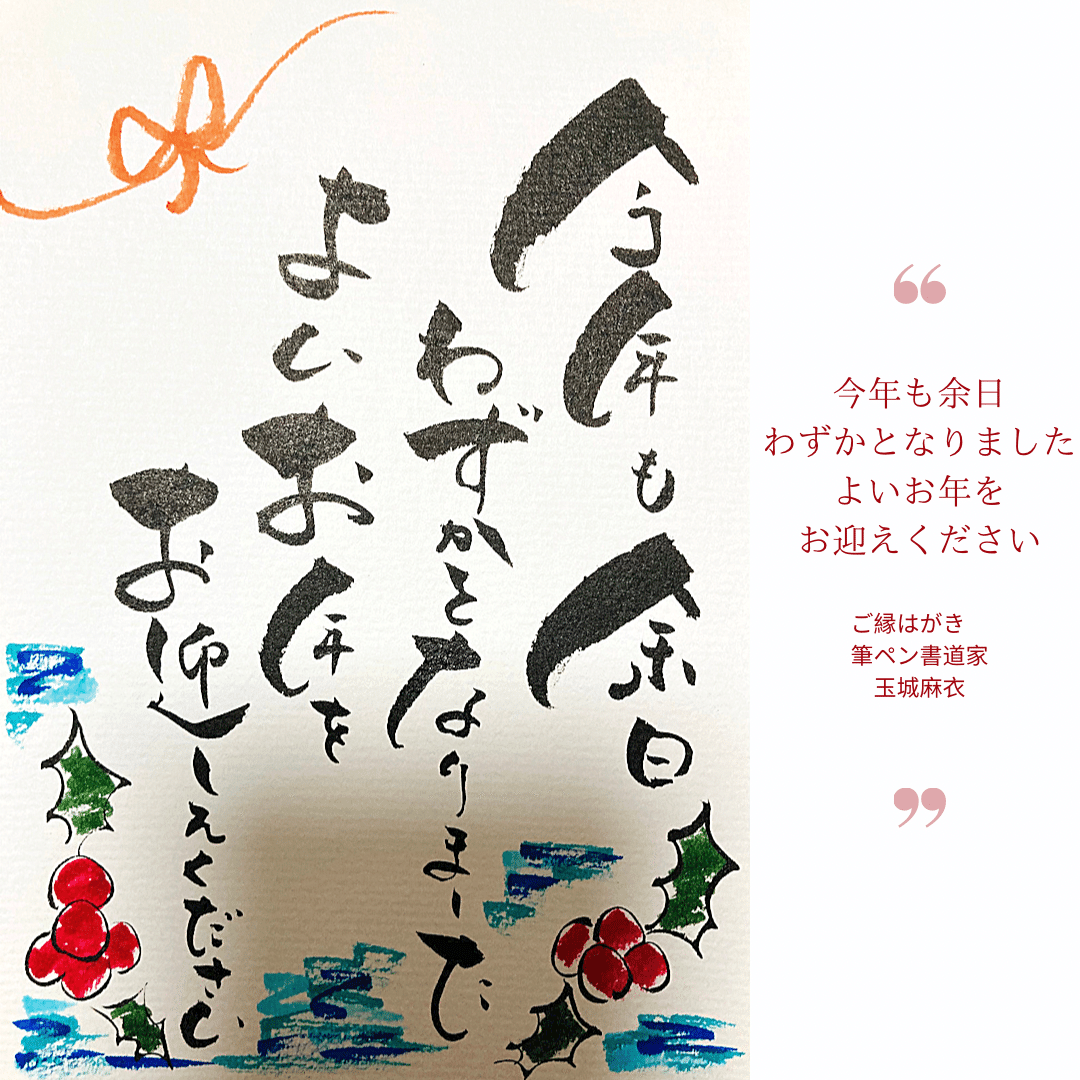 今年も余日
わずかとなりました
よいお年を
お迎えください
“
今年も余日
わずかとなりました
よいお年を
お迎えください
ご縁はがき
筆ペン書道家
玉城麻衣
”